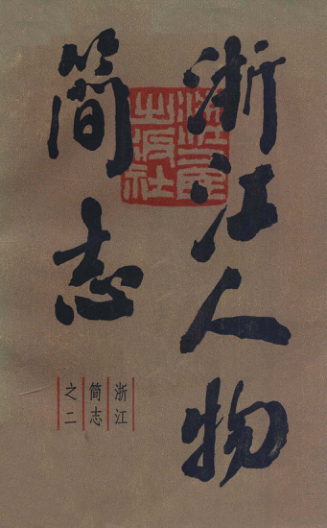 浙江人物
简志
浙江人民出版社
浙江
简志
之二